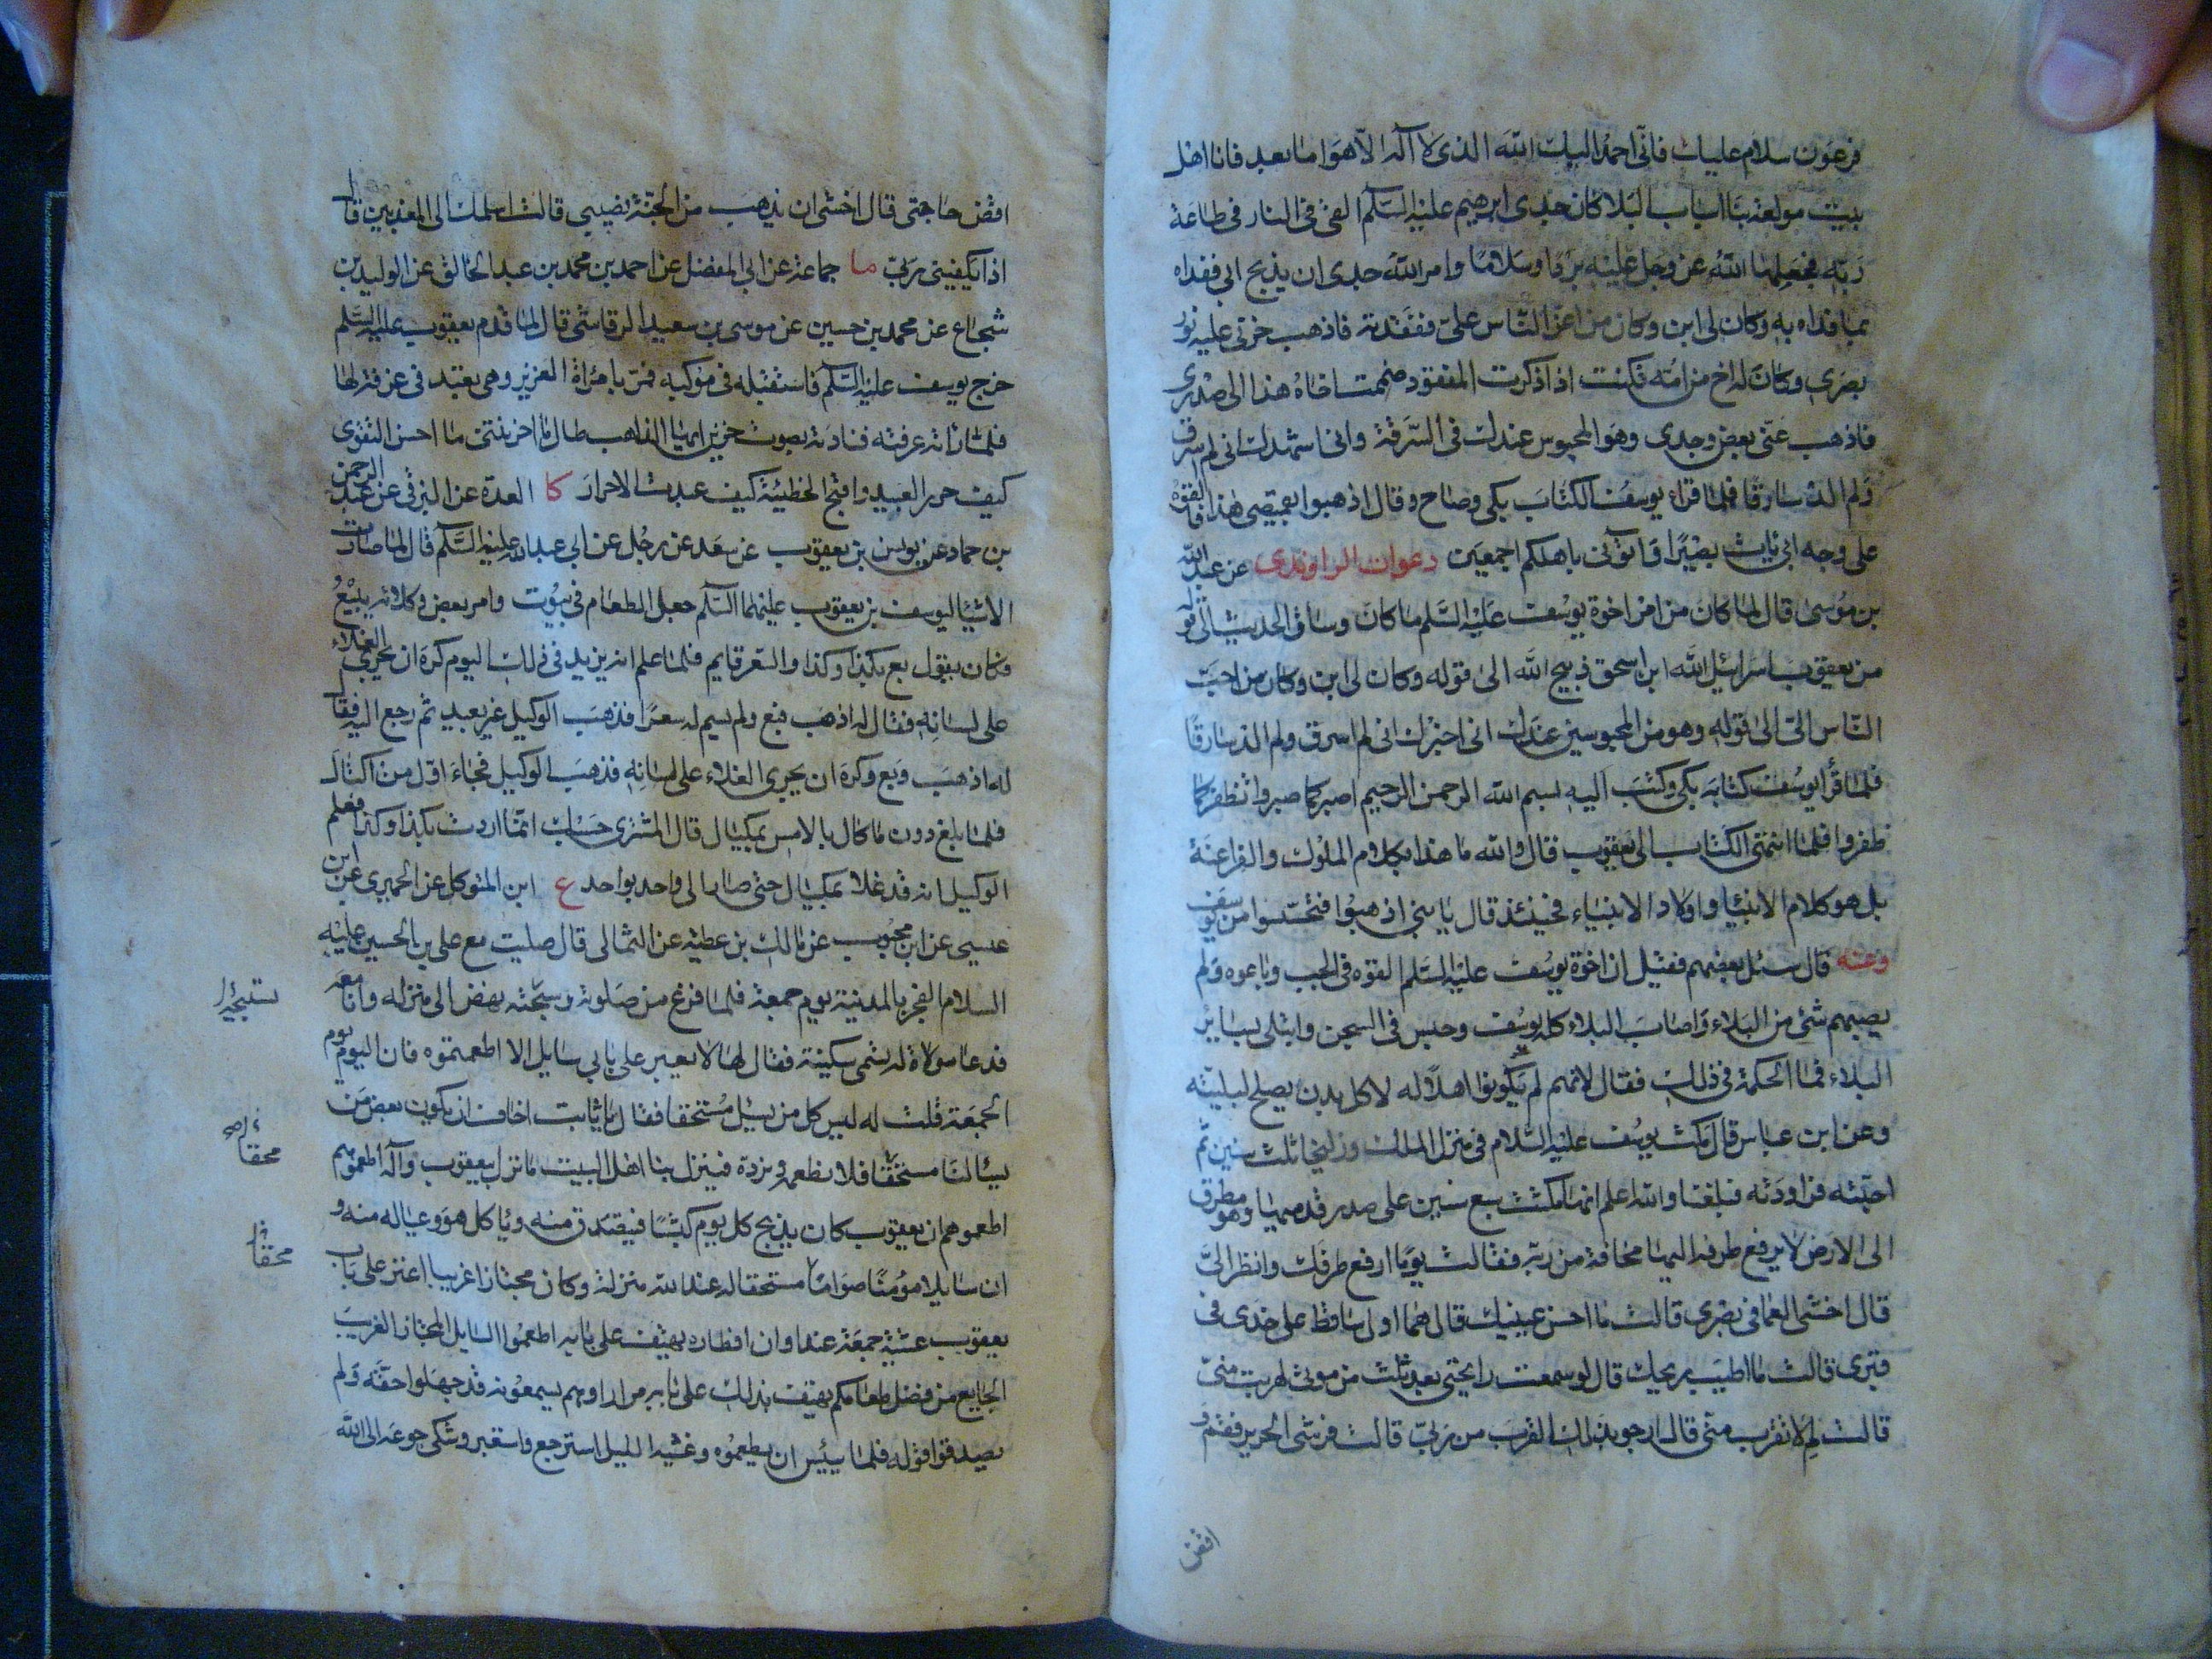 فرعون سلام عليك فانّى احمد اليك الله الذى لا اله الّا هو اما بعد فانا اهل
بيت مولعة بنا اسباب البلا كان جدى ابرهيم عليه السّلم القى فى النار فى طاعة
ربّه فجعلها الله عز وجل عليه بردا وسلاما وامر الله جدى ان يذبح ابى ففداه
بما فداه به وكان لى ابن وكان من اعز النّاس علىّ ففقدته فاذهب حزنى عليه نور
بصرى وكان له اخ من امّه فكنت اذا ذكرت المفقود ضممت اخاه هذا الى صدرى
فاذهب عنّى بعض وجدى وهو المحبوس عندك فى السّرقة وانى اشهدك انى لم اسرق
ولم الد سارقا فلما قراء يوسف الكتاب بكى وصاح وقال اذهبوا بقميصى هذا فالقوه
على وجه ابى يات بصيرا واتونى باهلكم اجمعين دعوات الراوندى عن عبد الله
بن موسى قال لما كان من امر اخوة يوسف عليه السّلم ما كان وساق الحديث الى قوله
من يعقوب اسرائيل الله ابن اسحق ذبيح الله الى قوله وكان لى ابن وكان من احبّ
النّاس الىّ الى قوله وهو من المحبوسين عندك انى اخبرك انى لم اسرق ولم الد سارقا
فلما قرأ يوسف كتابه بكى وكتب اليه بسم الله الرحمن الرحيم اصبر كما صبروا تظفر كما
ظفروا فلما انتهى الكتاب الى يعقوب قال والله ما هذا بكلام الملوك والفراعنة
بل هو كلام الانبيا واولاد الانبياء فحينئذ قال يا بنى اذهبوا فتحسّسوا من يوسف
وعنه قال سئل بعضهم فقيل ان اخوة يوسف عليه السّلم القوه فى الجب وباعوه ولم
يصيبهم شئ من البلاء واصاب البلاء كله يوسف وحبس فى السجن وابتلى بساير
البلاء فما الحكمة فى ذلك فقال لانهم لم يكونوا اهلا له لا كل بدن يصلح لبليته
وعن ابن عباس قال مكث يوسف عليه السّلام فى منزل الملك وزليخا ثلث سنين ثم
احبّته فراودته فبلغنا والله اعلم انها مكثت سبع سنين على صدر قدميها وهو مطرق
الى الارض لا يرفع طرفه اليها مخافة من ربّه فقالت يوما ارفع طرفك وانظر الىّ
قال اخشى العما فى بصرى قالت ما احسن عينيك قال هما اول ساقط على خدى فى
قبرى قالت ما اطيب ريحك قال لو سمعت رايحتى بعد ثلث من موتى لهربت منى
قالت لم لا تقرب منى قال ارجو بذلك القرب من ربّى قالت فرشى الحرير فقم و
اقض
اقض حاجتى قال اخشى ان يذهب من الجنّة نصيبى قالت اسلمك الى المعذبين قال
اذا يكفينى ربّى ما جماعة عن ابى المفضل عن احمد بن محمد بن عبد الخالق عن الوليد بن
شجاع عن محمد بن حسين عن موسى بن سعيد الرقاشى قال لما قدم يعقوب عليه السّلم
خرج يوسف عليه السّلم فاستقبله فى موكبه فمر بامراة العزيز وهى تعبد فى غرفة لها
فلما راته عرفته فنادته بصوت حزين ايها الذاهب طال ما احزنتنى ما احسن التقوى
كيف حرر العبيد واقبح الخطيئة كيف عبدت الاحرار كا العدة عن البرقى عن عبد الرحمن
بن حماد عن يونس بن يعقوب عن سعد عن رجل عن ابى عبد الله عليه السّلم قال لما صارت
الاشيا ليوسف بن يعقوب عليهما السّلم جعل الطعام فى بيوت وامر بعض وكلائه يبيع
فكان يقول بع بكذا وكذا والسعر قايم فلما علم انه يزيد فى ذلك اليوم كره ان يجرى الغلاء
على لسانه فقال له اذهب فبع ولم يسم له سعرا فذهب الوكيل غير بعيد ثم رجع اليه فقال
له اذهب وبع وكره ان يجرى الغلاء على لسانه فذهب الوكيل فجاء اول من اكتال
فلما بلغ دون ما كال بالامس بمكيال قال المشترى حسبك انما اردت بكذا وكذا فعلم
الوكيل انه قد غلا بمكيال حتى صار الى واحد بواحد ع ابن المتوكل عن الحميرى عن ابن
عيسى عن ابن محبوب عن مالك بن عطيه عن الثمالى قال صليت مع على بن الحسين عليه
السلام الفجر بالمدينة يوم جمعة فلما فرغ من صلوته وسبحته نهض الى منزله وانا معه
فدعا مولاة له تسمى سكينة فقال لها لا يعبر على بابى سايل الا اطعمتموه فان اليوم يوم
الجمعة قلت له ليس كل من يسئل مستحقا فقال يا ثابت اخاف ان يكون بعض من
يسئالنا مستحقا فلا نطعمه ونرده فينزل بنا اهل البيت ما نزل بيعقوب وآله اطعموهم
اطعموهم ان يعقوب كان يذبح كل يوم كبشا فيتصدق منه وياكل هو وعياله منه و
ان سايلا مؤمنا صواما مستحقا له عند الله منزلة وكان مجتازا غريبا اعتر على باب
يعقوب عشية جمعة عند اوان افطاره يهتف على بابه اطعموا السايل المجتاز الغريب
الجايع من فضل طعامكم يهتف بذلك على بابه مرارا وهم يسمعونه قد جهلوا حقه ولم
يصدقوا قوله فلما يئس ان يطعموه وغشيه الليل استرجع واستعبر وشكى جوعه الى الله
محقا
محقا